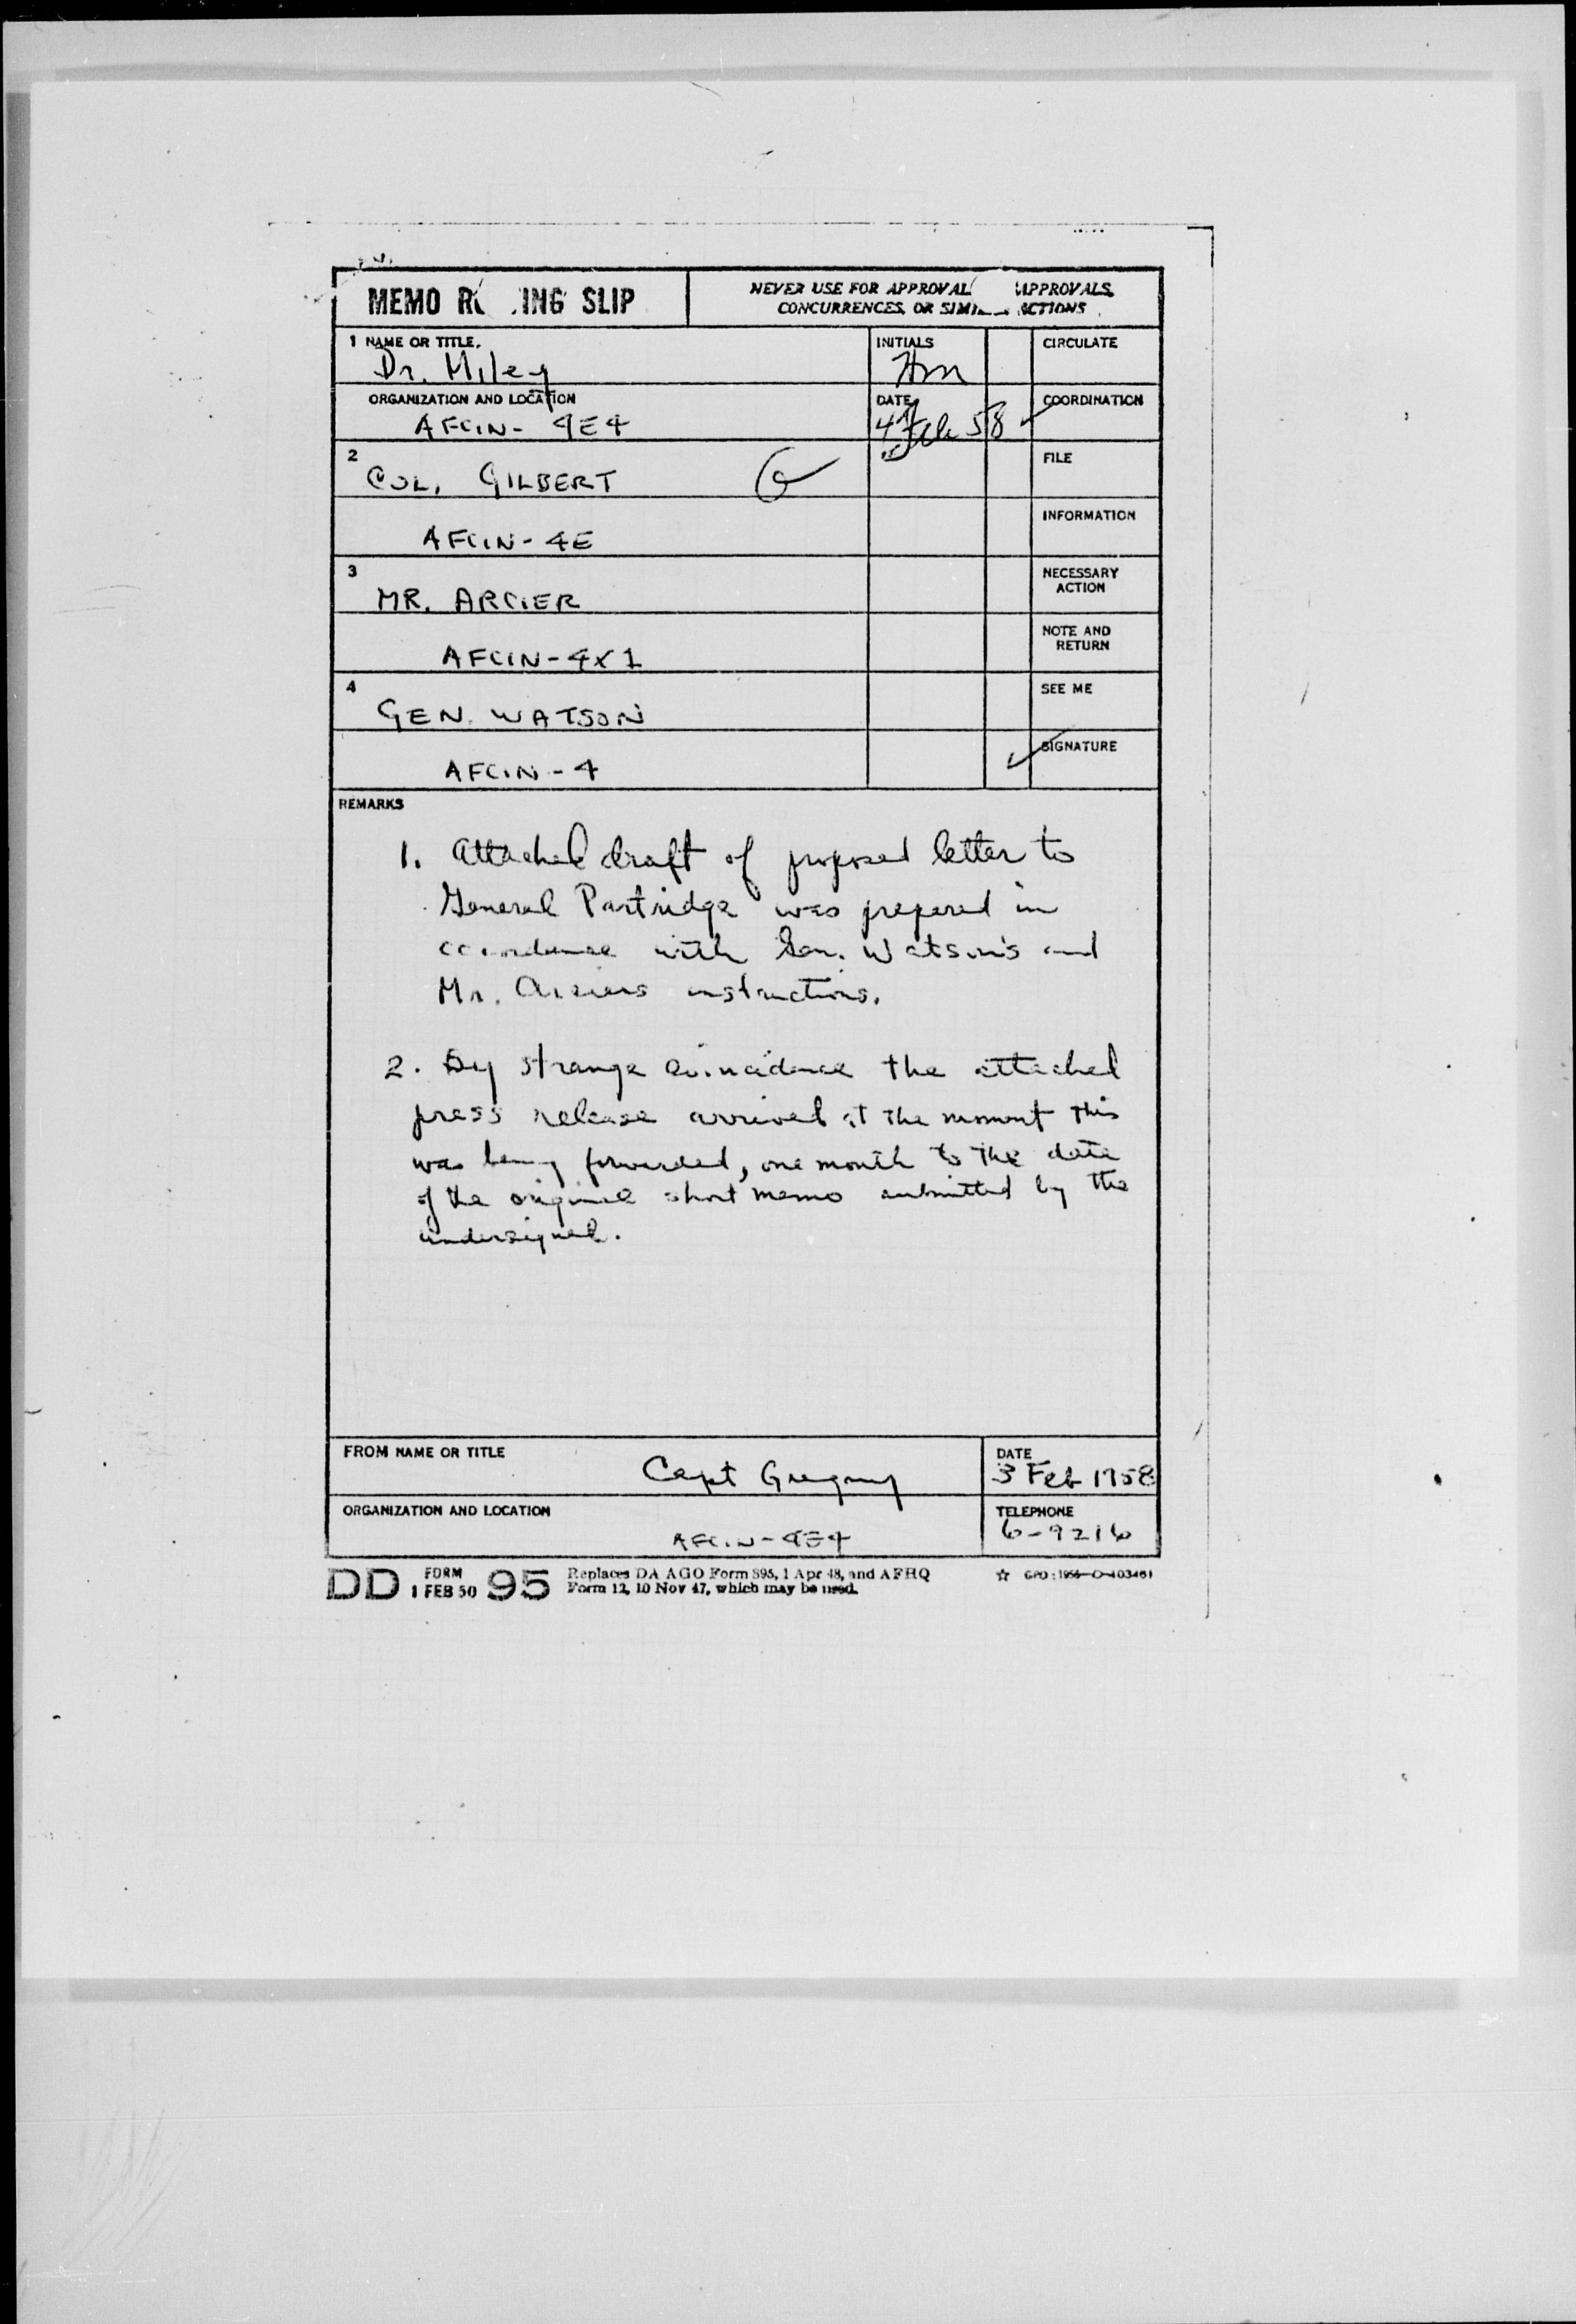 MEMO R ING SLIP
NEVER USE FOR APPROVAL APPROVALS,
CONCURRENCES, OR SIMI ACTIONS
1 NAME OR TITLE
Dr. Miley
INITIALS
HM
CIRCULATE
ORGANIZATION AND LOCATION
AFCIN- 4E4
DATE
4 Feb 58
COORDINATION
2
COL. GILBERT
G
FILE
AFCIN- 4E
INFORMATION
3
MR. ARCIER
NECESSARY
ACTION
AFCIN-4X1
NOTE AND
RETURN
4
GEN. WATSON
SEE ME
AFCIN-4
SIGNATURE
REMARKS
1. Attached draft of proposed letter to
General Partridge was prepared in
accordance with Gen. Watson's and
Mr. Arciers instructions.
2. By strange coincidence the attached
press release arrived at the moment this
was being forwarded, one month to the date
of the original short memo submitted by the
undersigned.
FROM NAME OR TITLE
Capt Gregory
DATE
3 Feb 1958
ORGANIZATION AND LOCATION
AFCIN-4E4
TELEPHONE
6-9216
DD FORM 1 FEB 50 95
Replaces DA AGO Form 895, 1 Apr 48, and AFHQ
Form 12, 10 Nov 47, which may be used.
☆ GPO:1956-O-403461